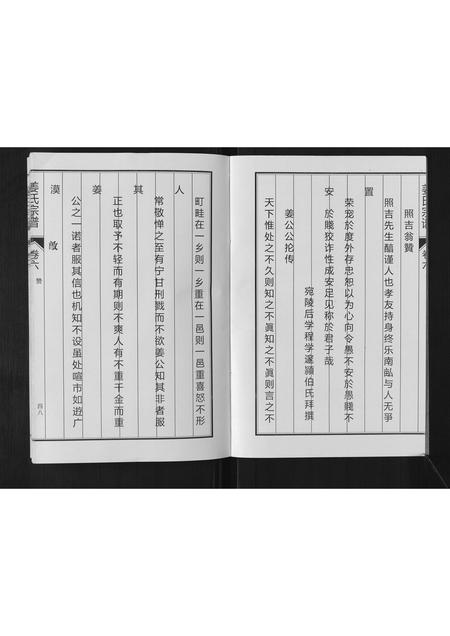 姜氏宗谱
卷六
照吉翁贊
照吉先生醕谨人也孝友持身终乐南畆与人无爭
置
荣宠於度外存忠恕以为心向令愚不安於愚賤不
安
於賤狡诈性成安足见称於君子哉
宛陵后学程学邃頴伯氏拜撰
姜公公抡传
天下惟处之不久则知之不眞知之不眞则言之不
町畦在一乡则一乡重在一邑则一邑重喜怒不形
人
常敬惮之至有宁甘刑戮而不欲姜公知其非者服
其
正也取予不轻而有期则不爽人有不重千金而重
姜
公之一诺者服其信也机知不设虽处喧市如逰广
漠
姜氏宗谱
卷六
赞
四八